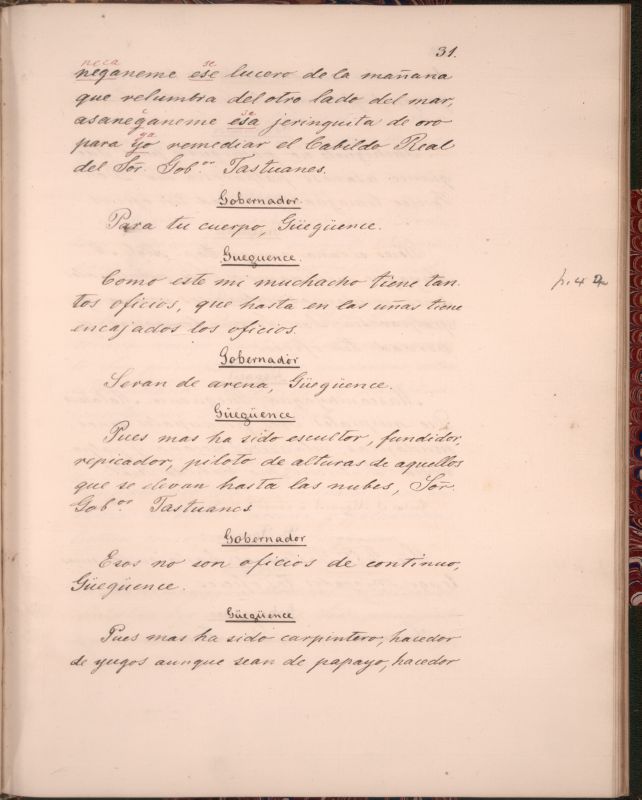 31.
neca se
neganeme ese lucero de la mañana
que relumbra del otro lado del mar,
c se
asaneganeme esa jeringuita de oro
ya
para yo remediar el Cabildo Real
del Sōr. Gob.or Tastuanes.
Gobernador.
Para tu cuerpo, Güegüence.
Gueguence.
Como este mi muchacho tiene tan-
tos oficios, que hasta en las uñas tiene
encajados los oficios.
Gobernador
Seran de arena, Güegüence.
Güegüence
Pues mas ha sido escultor, fundidor,
repicador, piloto de alturas de aquellos
que se elevan hasta las nubes, Sōr.
Gob.or Tastuanes
Gobernador
Esos no son oficios de continuo,
Güegüence.
Güegüence
Pues mas ha sido carpintero, hacedor
de yugos aunque sean de papayo, hacedor